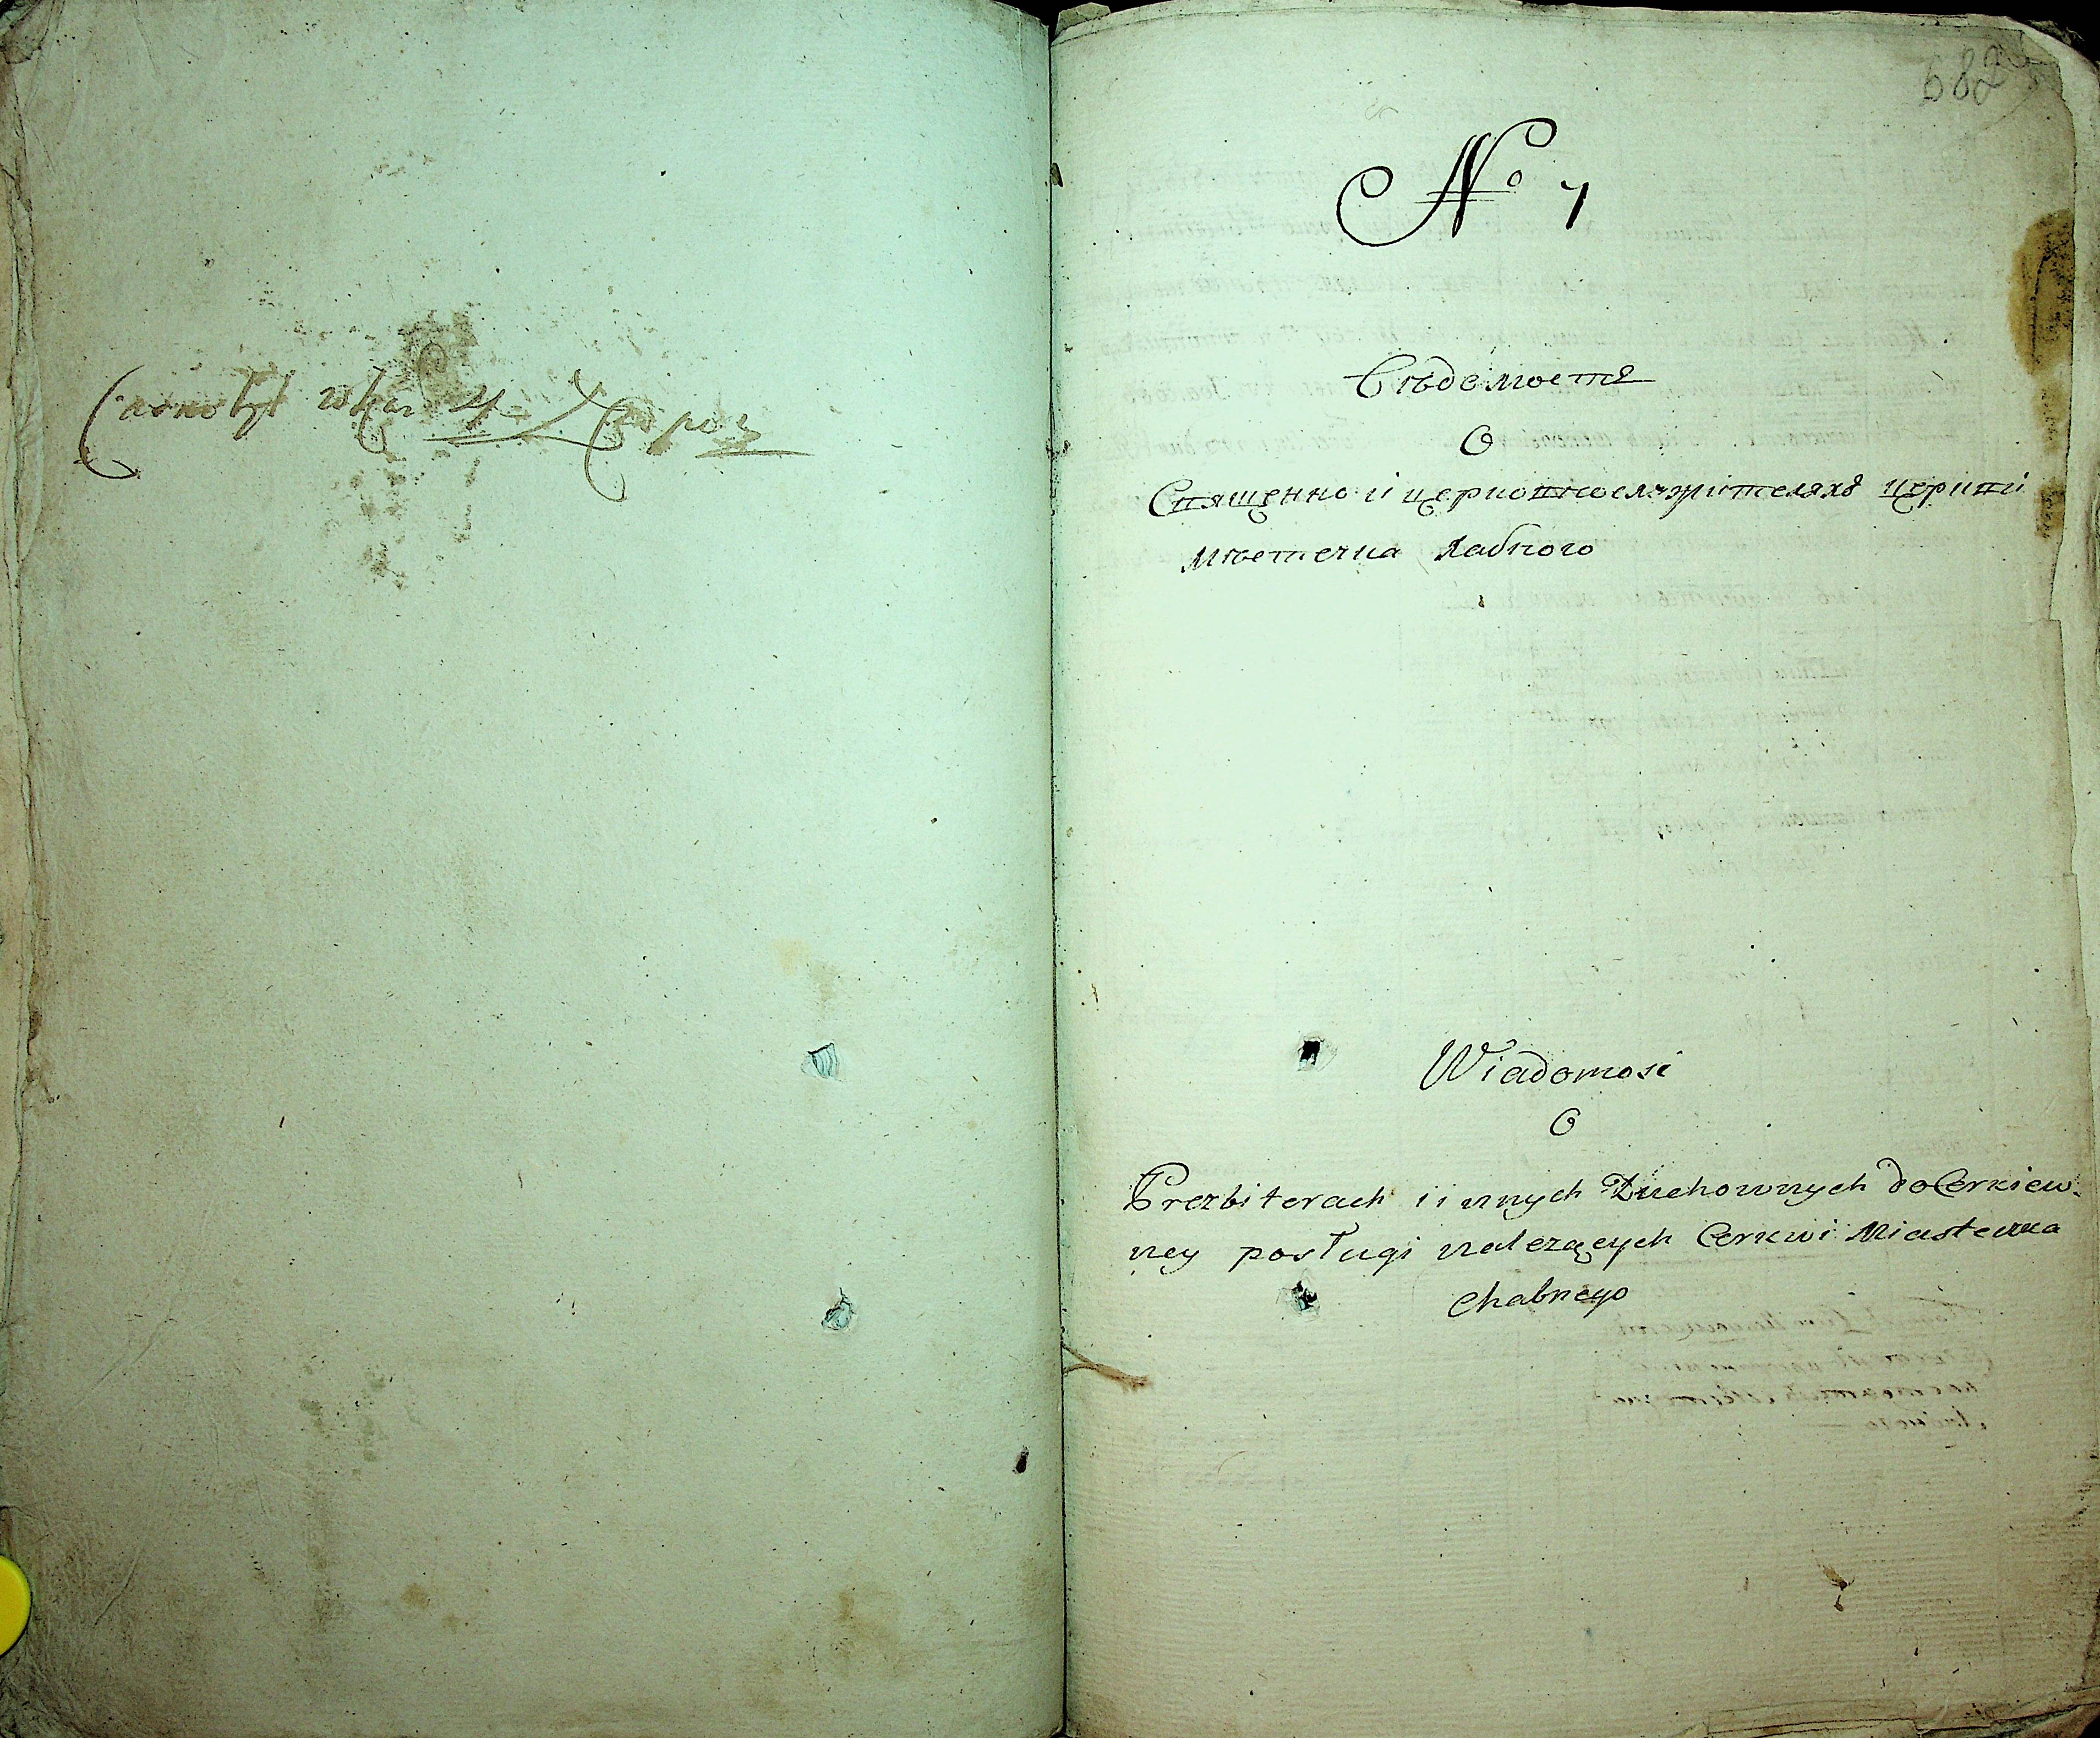 682
№ 7
Вѣдемость
О
Священно и церковнослужителяхъ церкви
мѣстечка Хабного
Wiadomosć
O
Prezbiterach i innych Duchownych do Cerkiew-
ney posługi należących Cerkwi Miasteczka
Chabnego